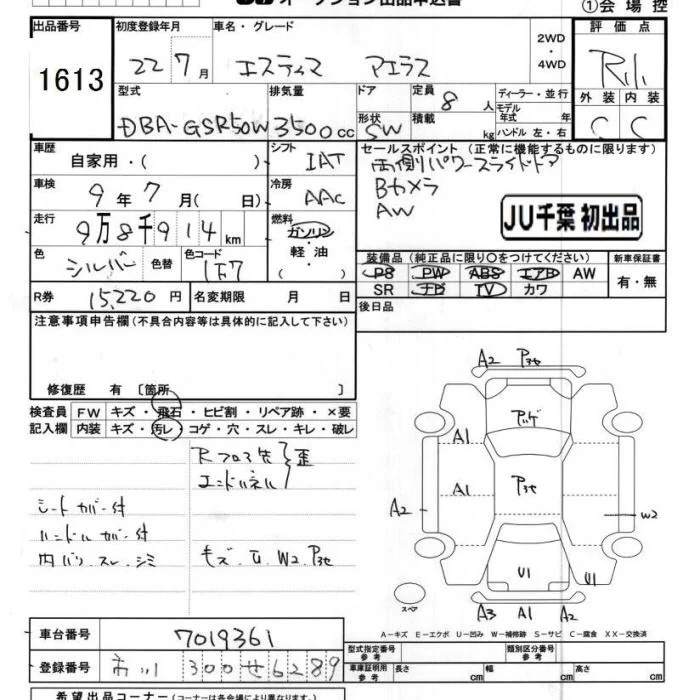 ①会場控
出品番号
1613
初度登録年月
22 7月
車名・グレード
エスティマ アエラス
2WD
・
4WD
評価点
外装 内装
C C
型式
DBA-GSR50W
排気量
3500cc
ドア
形状
SW
定員
8人
積載
kg
ディーラー・並行
モデル年式 年
ハンドル 左・右
車歴
自家用・( )
シフト
IAT
車検
9年7月( 日)
冷房
AAC
走行
9万8千914km
燃料
ガソリン
・
軽油
( )
色
シルバー
色替
色コード
1F7
R券
15,220円
名変期限 月 日
セールスポイント(正常に機能するものに限ります)
両側パワースライドドア
Bカメラ
AW
JU千葉 初出品
装備品(純正品に限り○をつけてください)
新車保証書
PS PW ABS エアB AW
SR ナビ TV カワ
有・無
後日品
注意事項申告欄(不具合内容等は具体的に記入して下さい)
修復歴 有 〔箇所 〕
検査員 FW キズ・飛石・ヒビ割・リペア跡・×要
記入欄 内装 キズ・汚レ・コゲ・穴・スレ・キレ・破レ
Rフロア先
エンドパネル
歪
シートカバー付
ハンドルカバー付
内バリ・スレ・シミ
キズ・U・W2・Pﾁｾ
A2 Pﾁｾ
A1
A1
Pﾁｾ
A2
W2
U1
U1
スペア
A3 A1 A2
A－キズ E－エクボ U－凹み W－補修跡 S－サビ C－腐食 XX－交換済
車台番号
7019361
登録番号
市川 300 せ 6289
型式指定番号
参考
類別区分番号
参考
車庫証明用
参考
長さ cm
幅 cm
高さ cm
希望出品コーナー(